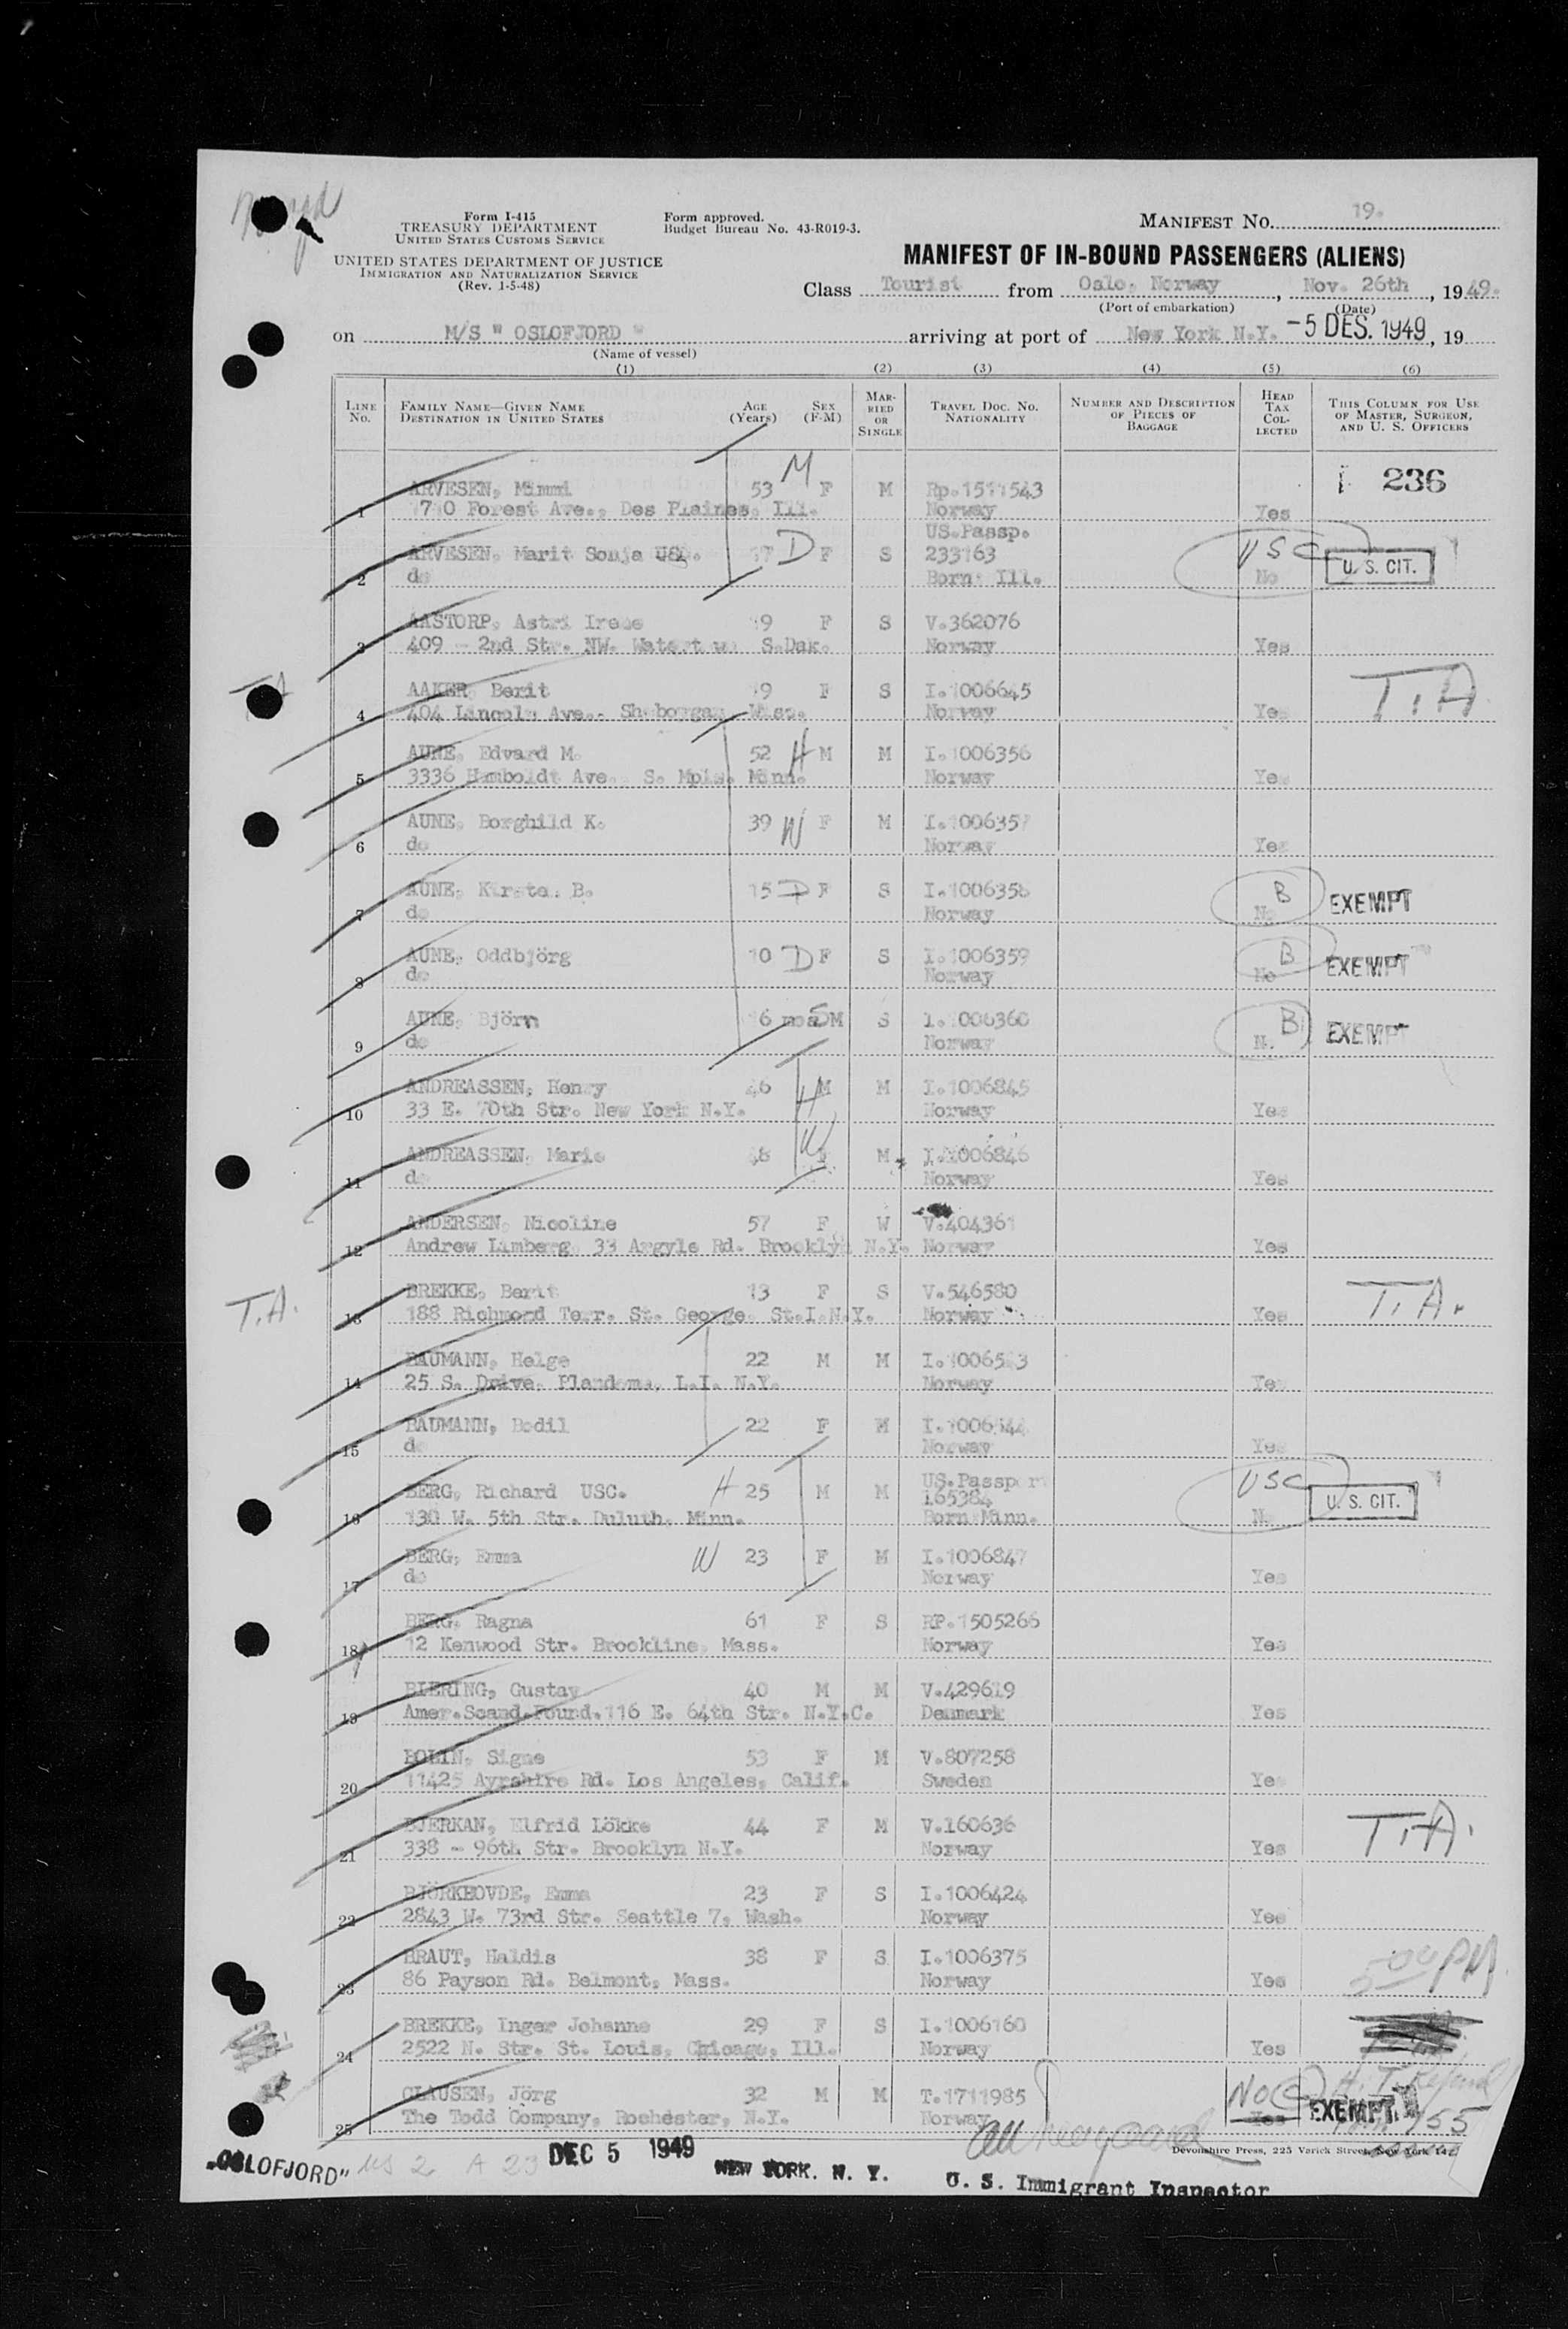 Form I-415
TREASURY DEPARTMENT
UNITED STATES CUSTOMS SERVICE
UNITED STATES DEPARTMENT OF JUSTICE
IMMIGRATION AND NATURALIZATION SERVICE
(Rev. 1-5-48)
Form approved.
Budget Bureau No. 43-R019-3.
MANIFEST NO. 19.
MANIFEST OF IN-BOUND PASSENGERS (ALIENS)
Class Tourist from Oslo, Norway, Nov. 26th, 1949.
(Port of embarkation) (Date)
on M/S " OSLOFJORD " arriving at port of New York N.Y. -5 DES. 1949, 19
(Name of vessel)
(1) (2) (3) (4) (5) (6)
LINE NO. FAMILY NAME—GIVEN NAME DESTINATION IN UNITED STATES AGE (Years) SEX (F-M) MARRIED OR SINGLE TRAVEL DOC. NO. NATIONALITY NUMBER AND DESCRIPTION OF PIECES OF BAGGAGE HEAD TAX COLLECTED THIS COLUMN FOR USE OF MASTER, SURGEON, AND U. S. OFFICERS
ARVESEN, Mimmi 53 M F M Rp.1511543 236
1 Forest Ave., Des Plaines, Ill. Norway Yes
US.Passp.
ARVESEN, Marit Sonja USC. 17 D F S 233163 USC U. S. CIT.
2 do Born: Ill. No
AASTORP, Astri Irene 19 F S V.362076
3 409 - 2nd Str. NW. Watertown S.Dak. Norway Yes
AAKER, Berit 19 F S I.1006645 T.A.
4 404 Lincoln Ave.. Sheboygan Wisc. Norway Yes
AUNE, Edvard M. 52 H M M I.1006356
5 3336 Humboldt Ave. S. Mpls. Minn. Norway Yes
AUNE, Borghild K. 39 W F M I.1006357
6 do Norway Yes
AUNE, B. 15 D F S I.1006358 B EXEMPT
7 do Norway No
AUNE, Oddbjörg 10 D F S I.1006359 B EXEMPT
8 do Norway No
AUNE, Björn S M S I.1006360 B EXEMPT
9 do Norway No
ANDREASSEN, Henry 46 H M M I.1006845
10 33 E. 70th Str. New York N.Y. Norway Yes
ANDREASSEN, Marie 48 W F M I.1006846
11 do Norway Yes
ANDERSEN, Nicoline 57 F W V.404361
12 Andrew Limberg, 33 Argyle Rd. Brooklyn N.Y. Norway Yes
T.A. BREKKE, Berit 13 F S V.546580 T.A.
13 188 Richmond Terr. St. George, St.I.N.Y. Norway Yes
BAUMANN, Helge 22 M M
14 25 S. Drive, Plandome, L.I. N.Y. Norway Yes
BAUMANN, Bodil 22 F M
15 do Norway Yes
BERG, Richard USC. H 25 M M US.Passport 165384 USC U. S. CIT.
16 130 W. 5th Str. Duluth, Minn. Born:Minn. No
BERG, Emma W 23 F M I.1006847
17 do Norway Yes
BERG, Ragna 61 F S RP.1505266
18 12 Kenwood Str. Brookline, Mass. Norway Yes
BIERING, Gustav 40 M M V.429619
19 Amer.Scand.Found.116 E. 64th Str. N.Y.C. Denmark Yes
BOLIN, Signe 53 F M V.807258
20 11425 Ayrshire Rd. Los Angeles, Calif. Sweden Yes
BJERKAN, Elfrid Lökke 44 F M V.160636 T.A.
21 338 - 96th Str. Brooklyn N.Y. Norway Yes
BJÖRKHOVDE, Emma 23 F S I.1006424
22 2843 W. 73rd Str. Seattle 7, Wash. Norway Yes
BRAUT, Haldis 38 F S I.1006375 5 00 PM
23 86 Payson Rd. Belmont, Mass. Norway Yes
BREKKE, Inger Johanne 29 F S I.1006160
24 2522 N. Str. St. Louis, Chicago, Ill. Norway Yes
CLAUSEN, Jörg 32 M M T.1711985 No C H.T. Refund
25 The Todd Company, Rochester, N.Y. Norway Yes EXEMPT 55
Devonshire Press, 225 Varick Street, New York 14
"OSLOFJORD" US 2 A 23 DEC 5 1949 NEW YORK. N. Y. U. S. Immigrant Inspector